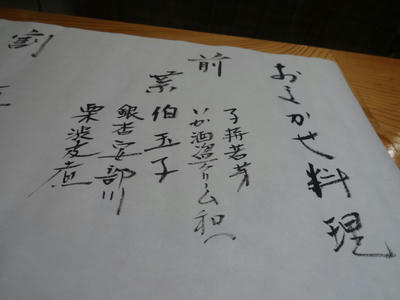 おまかせ料理
前菜
子持若芽
いか酒盗クリーム和へ
伯玉子
銀杏安部川
栗渋皮煮
割